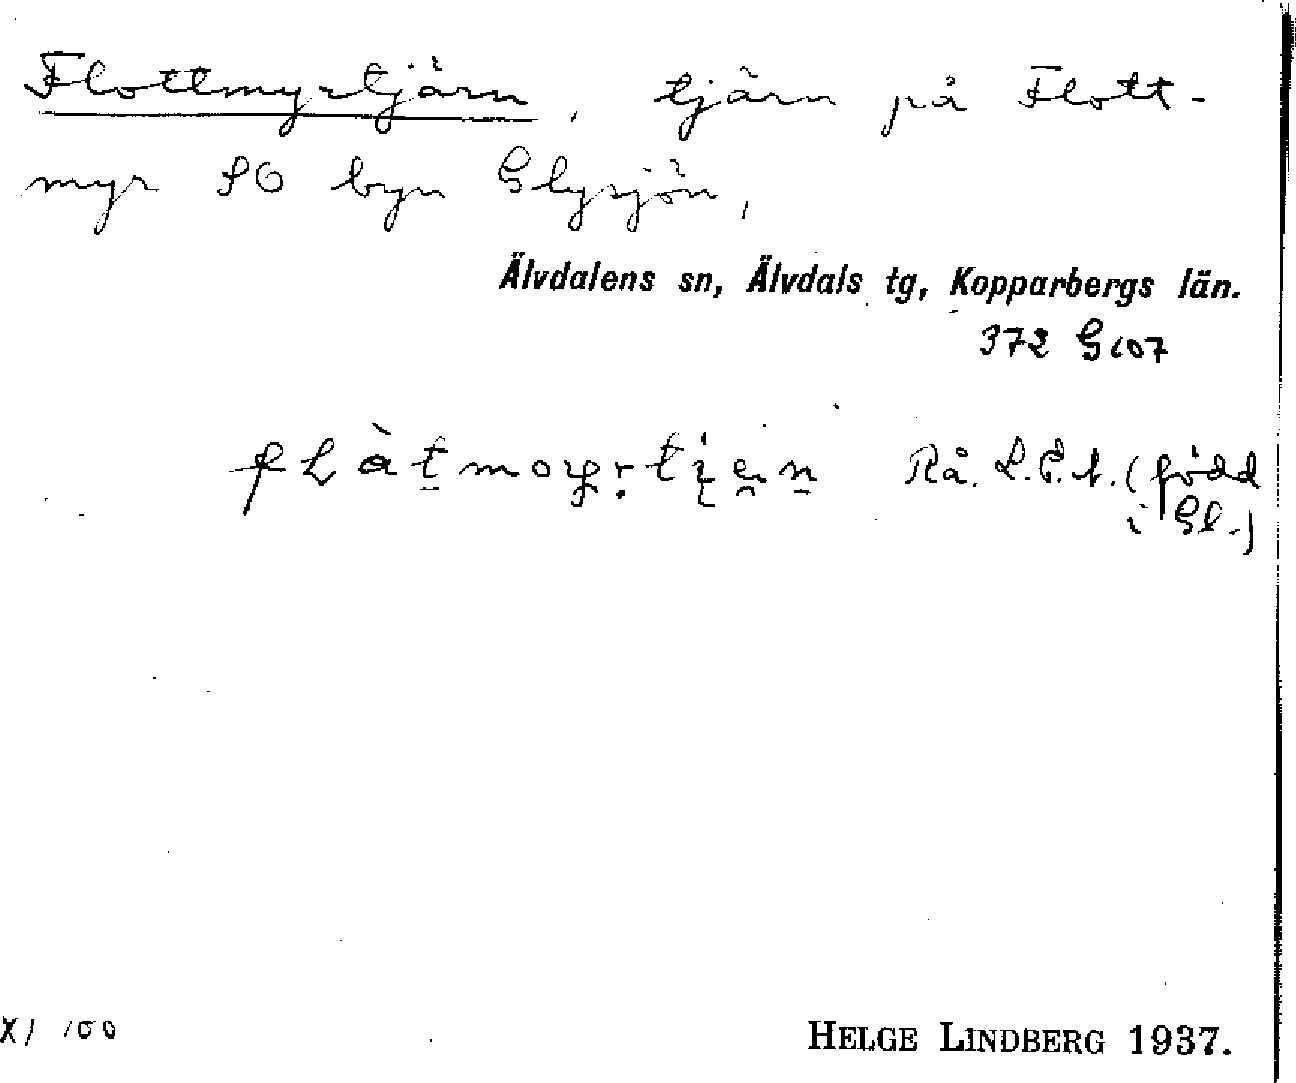 Flottmyrtjärn, tjärn på Flott-
myr SO byn Glysjön,
Älvdalens sn, Älvdals tg, Kopparbergs län.
372 G107
Rå. (född
i Gl.)
X/ 100
HELGE LINDBERG 1937.